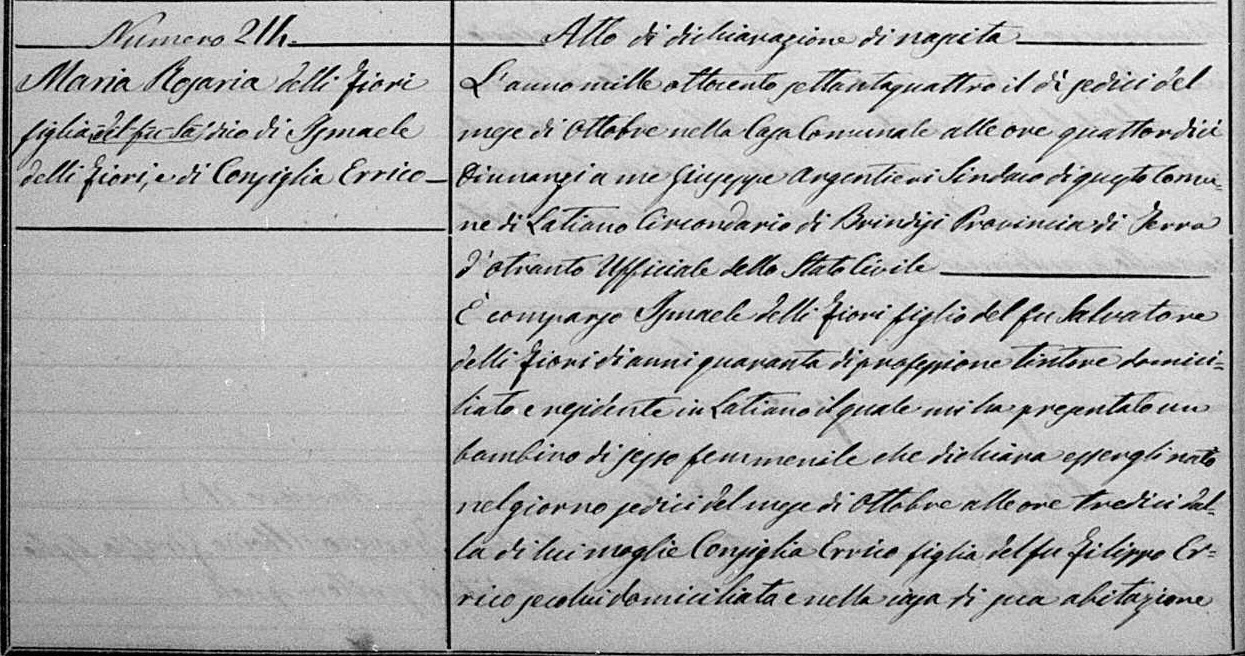 Numero 211.
Maria Rosaria delli Fiori
figlia del fu Sa dio di Ismaele
delli Fiori, e di Consiglia Errico
Atto di dichiarazione di nascita
L'anno mille ottocento settantaquattro il dì sedici del
mese di Ottobre nella Casa Comunale alle ore quattordici
Dinnanzi a me Giuseppe Argentieri Sindaco di questo Comu-
ne di Latiano Circondario di Brindisi Provincia di Terra
d'Otranto Ufficiale dello Stato Civile
È comparso Ismaele delli Fiori figlio del fu Salvatore
delli Fiori di anni quaranta di professione tintore domici-
liato e residente in Latiano il quale mi ha presentato un
bambino di sesso femmenile che dichiara essergli nato
nel giorno sedici del mese di Ottobre alle ore tredici dal-
la di lui moglie Consiglia Errico figlia del fu Filippo Er-
rico secolui domiciliata e nella casa di sua abitazione